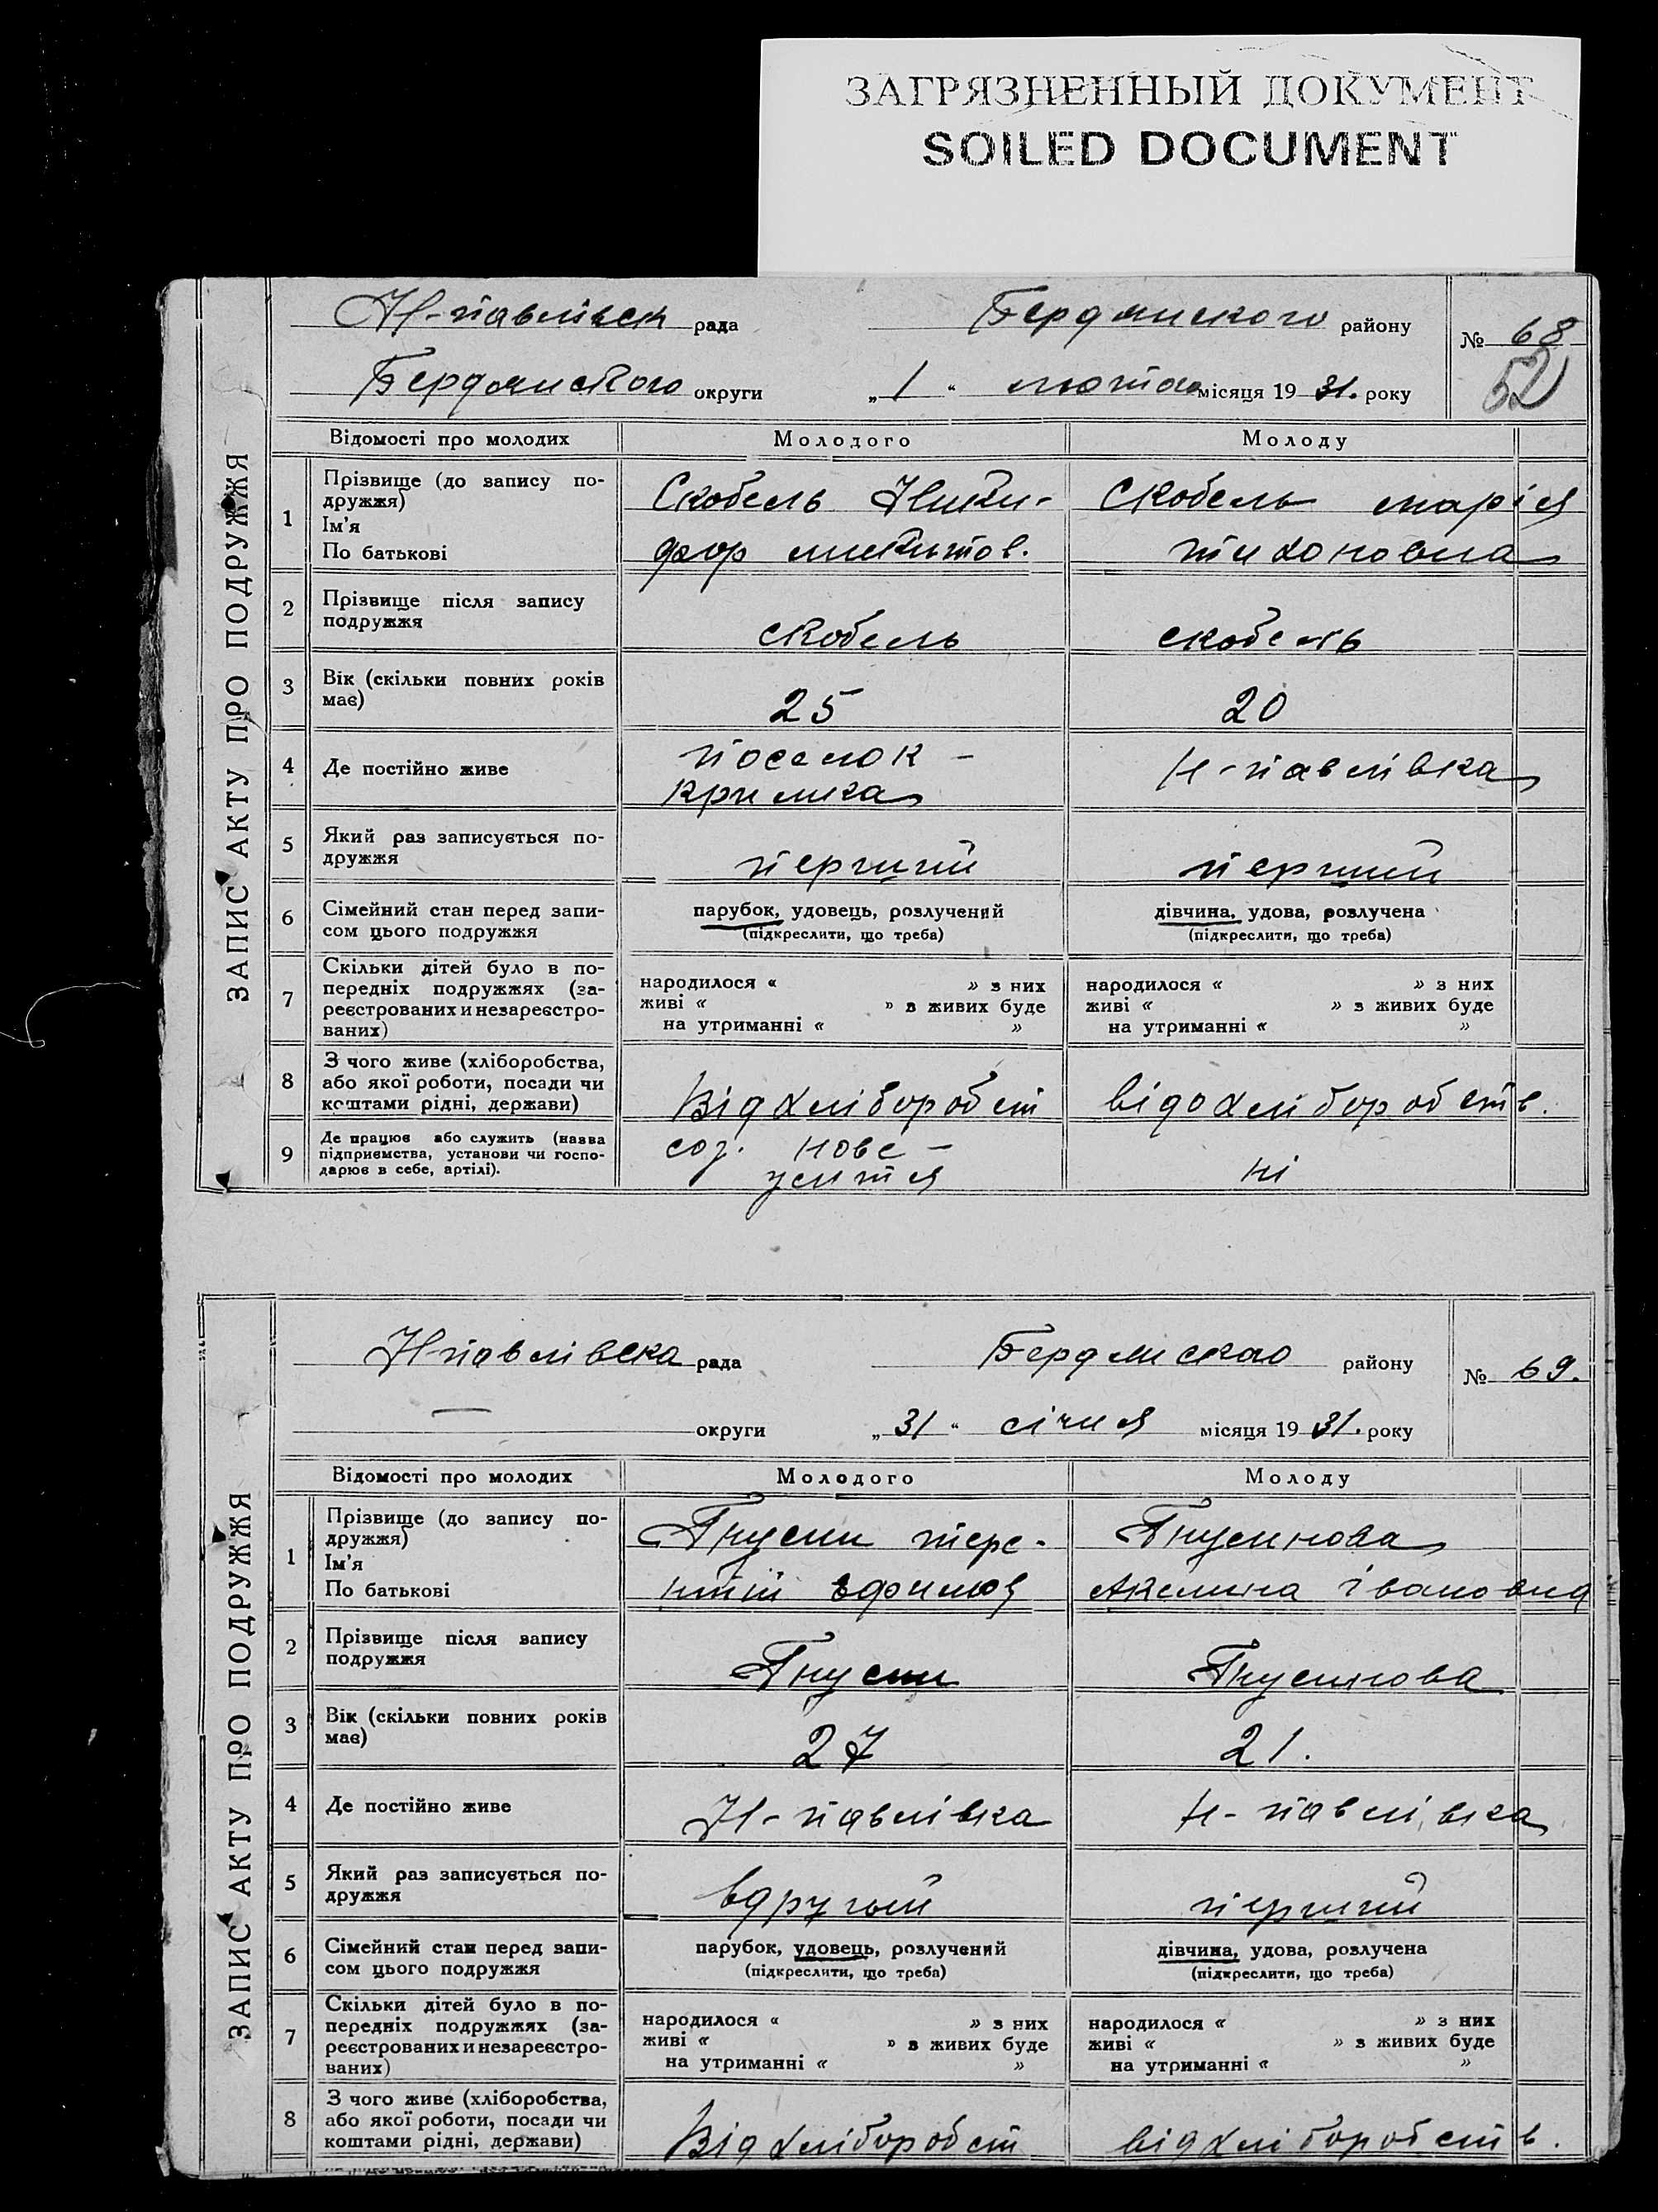 ЗАГРЯЗНЕННЫЙ ДОКУМЕНТ
SOILED DOCUMENT
Н-павлівськ рада Бердянского району № 68
52
Бердянского округи „1“ лютого місяця 1931. року
ЗАПИС АКТУ ПРО ПОДРУЖЖЯ
Відомості про молодих Молодого Молоду
1 Прізвище (до запису по-
дружжя)
Ім’я
По батькові
Скобель Ники-
фор микитов.
Скобель марія
тихоновна
2 Прізвище після запису
подружжя
скобель скобель
3 Вік (скільки повних років
має)
25 20
4 Де постійно живе
поселок -
кримка
Н-павлівка
5 Який раз записується по-
дружжя
перший перший
6 Сімейний стан перед запи-
сом цього подружжя
парубок, удовець, розлучений
(підкреслити, що треба)
дівчина, удова, розлучена
(підкреслити, що треба)
7 Скільки дітей було в по-
передніх подружжях (за-
реєстрованих и незареєстро-
ваних)
народилося « » з них
живі « » з живих буде
на утриманні « »
народилося « » з них
живі « » з живих буде
на утриманні « »
8 З чого живе (хліборобства,
або якої роботи, посади чи
коштами рідні, держави)
Від хліборобст від охліборобств.
9 Де працює або служить (назва
підприємства, установи чи госпо-
дарює в себе, артілі).
соз. нове -
ні
Н-павлівска рада Бердянскао району № 69.
— округи „31“ січня місяця 1931. року
ЗАПИС АКТУ ПРО ПОДРУЖЖЯ
Відомості про молодих Молодого Молоду
1 Прізвище (до запису по-
дружжя)
Ім’я
По батькові
Гнусин тере-
нтій
Гнусинова
Акелина івановна
2 Прізвище після запису
подружжя
Гнусин Гнусинова
3 Вік (скільки повних років
має)
27 21.
4 Де постійно живе
Н-павлівка Н-павлівка
5 Який раз записується по-
дружжя
вдругий перший
6 Сімейний стан перед запи-
сом цього подружжя
парубок, удовець, розлучений
(підкреслити, що треба)
дівчина, удова, розлучена
(підкреслити, що треба)
7 Скільки дітей було в по-
передніх подружжях (за-
реєстрованих и незареєстро-
ваних)
народилося « » з них
живі « » з живих буде
на утриманні « »
народилося « » з них
живі « » з живих буде
на утриманні « »
8 З чого живе (хліборобства,
або якої роботи, посади чи
коштами рідні, держави)
Від хліборобст від хліборобств.